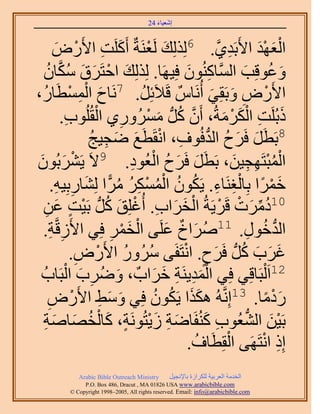 إشعياء 24
الْعَهْدَ الأَبَدِيَّ. 6لِذلِكَ لَعْنَةٌ أَكَلَتِ الأَرْضَ
وَعُوقِبَ السَّاكِنُونَ فِيهَا. لِذلِكَ احْتَرَقَ سُكَّانُ
الأَرْضِ وَبَقِيَ أُنَاسٌ قَلاَئِلُ. 7نَاحَ الْمِسْطَارُ،
ذَبُلَتِ الْكَرْمَةُ، أَنَّ كُلُّ مَسْرُورِي الْقُلُوبِ.
8بَطَلَ فَرَحُ الدُّفُوفِ، انْقَطَعَ ضَجِيجُ
الْمُبْتَهِجِينَ، بَطَلَ فَرَحُ الْعُودِ. 9لاَ يَشْرَبُونَ
خَمْرًا بِالْغِنَاءِ. يَكُونُ الْمُسْكِرُ مُرًّا لِشَارِبِيهِ.
10دُمِّرَتْ قَرْيَةُ الْخَرَابِ. أُغْلِقَ كُلُّ بَيْتٍ عَنِ
الدُّخُولِ. 11صُرَاخٌ عَلَى الْخَمْرِ فِي الأَزِقَّةِ.
غَرَبَ كُلُّ فَرَحٍ. انْتَفَى سُرُورُ الأَرْضِ.
12اَلْبَاقِي فِي الْمَدِينَةِ خَرَابٌ، وَضُرِبَ الْبَابُ
رَدْمًا. 13إِنَّهُ هكَذَا يَكُونُ فِي وَسَطِ الأَرْضِ
بَيْنَ الشُّعُوبِ كَنُفَاضَةِ زَيْتُونَةٍ، كَالْخُصَاصَةِ
إِذِ انْتَهَى الْقِطَافُ.
Arabic Bible Outreach Ministry الخدمة العربية للكرازة بالإنجيل
P.O. Box 486, Dracut , MA 01826 USA www.arabicbible.com
© Copyright 1998–2005, All rights reserved. Email: info@arabicbible.com